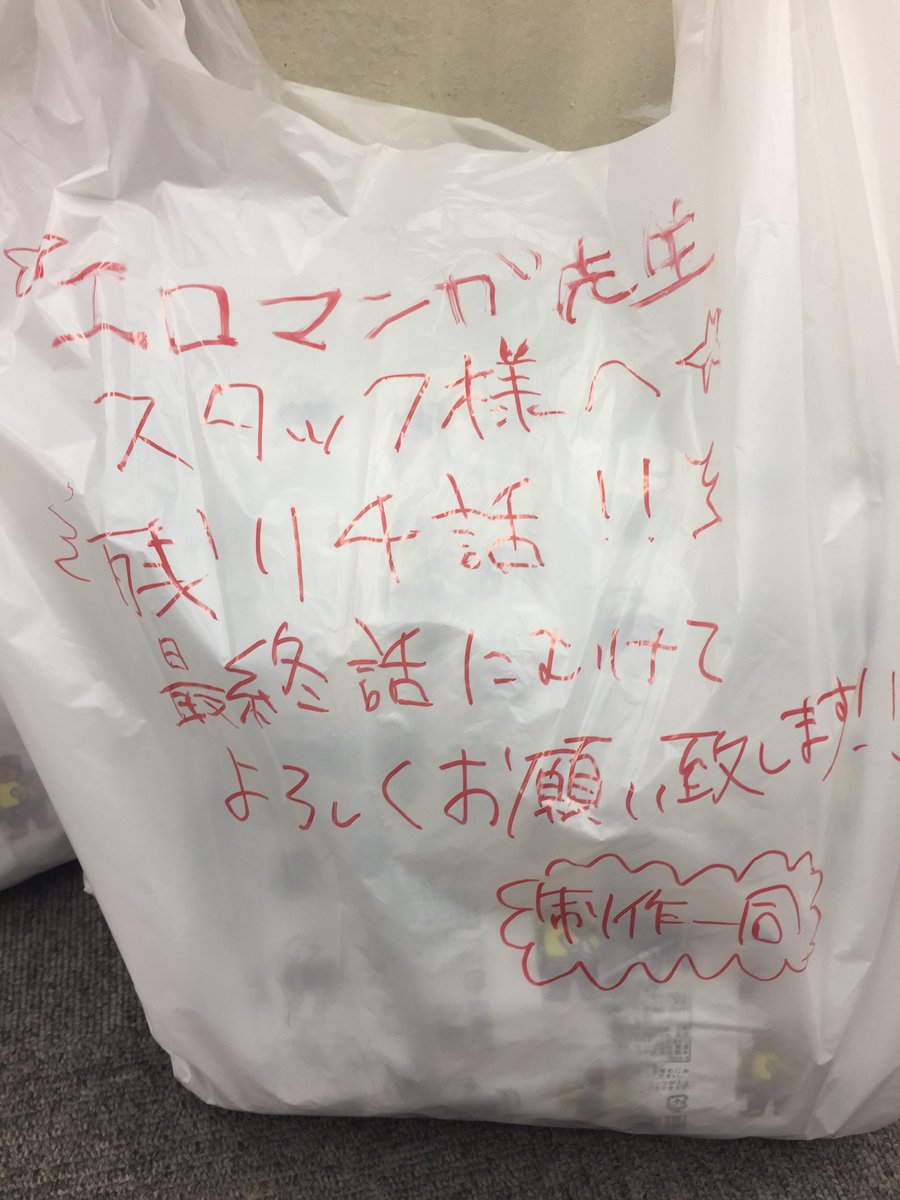 ☆エロマンガ先生
スタッフ様へ☆
残り4話!!
最終話にむけて
よろしくお願い致します!!
制作一同